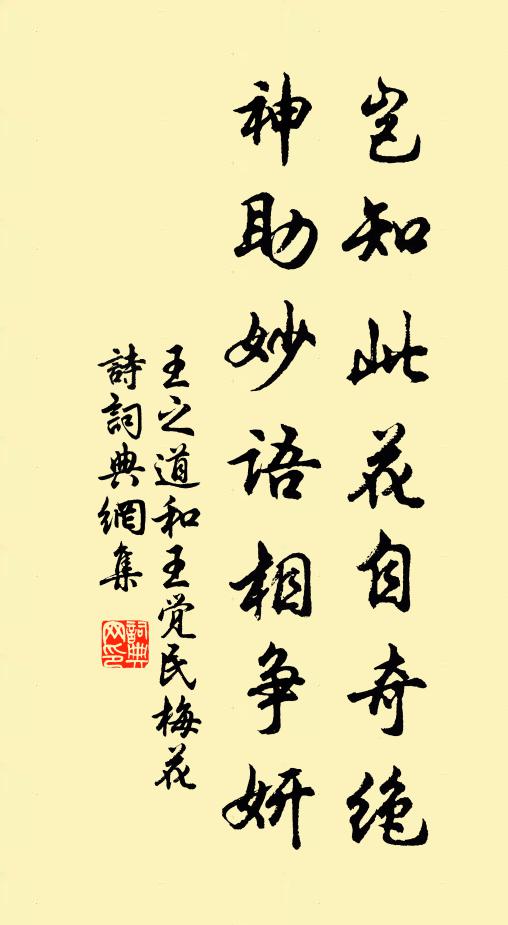 岂知此花自奇绝
神助妙语相争妍
王之道和王觉民梅花
詩詞典網集
詞典
网印